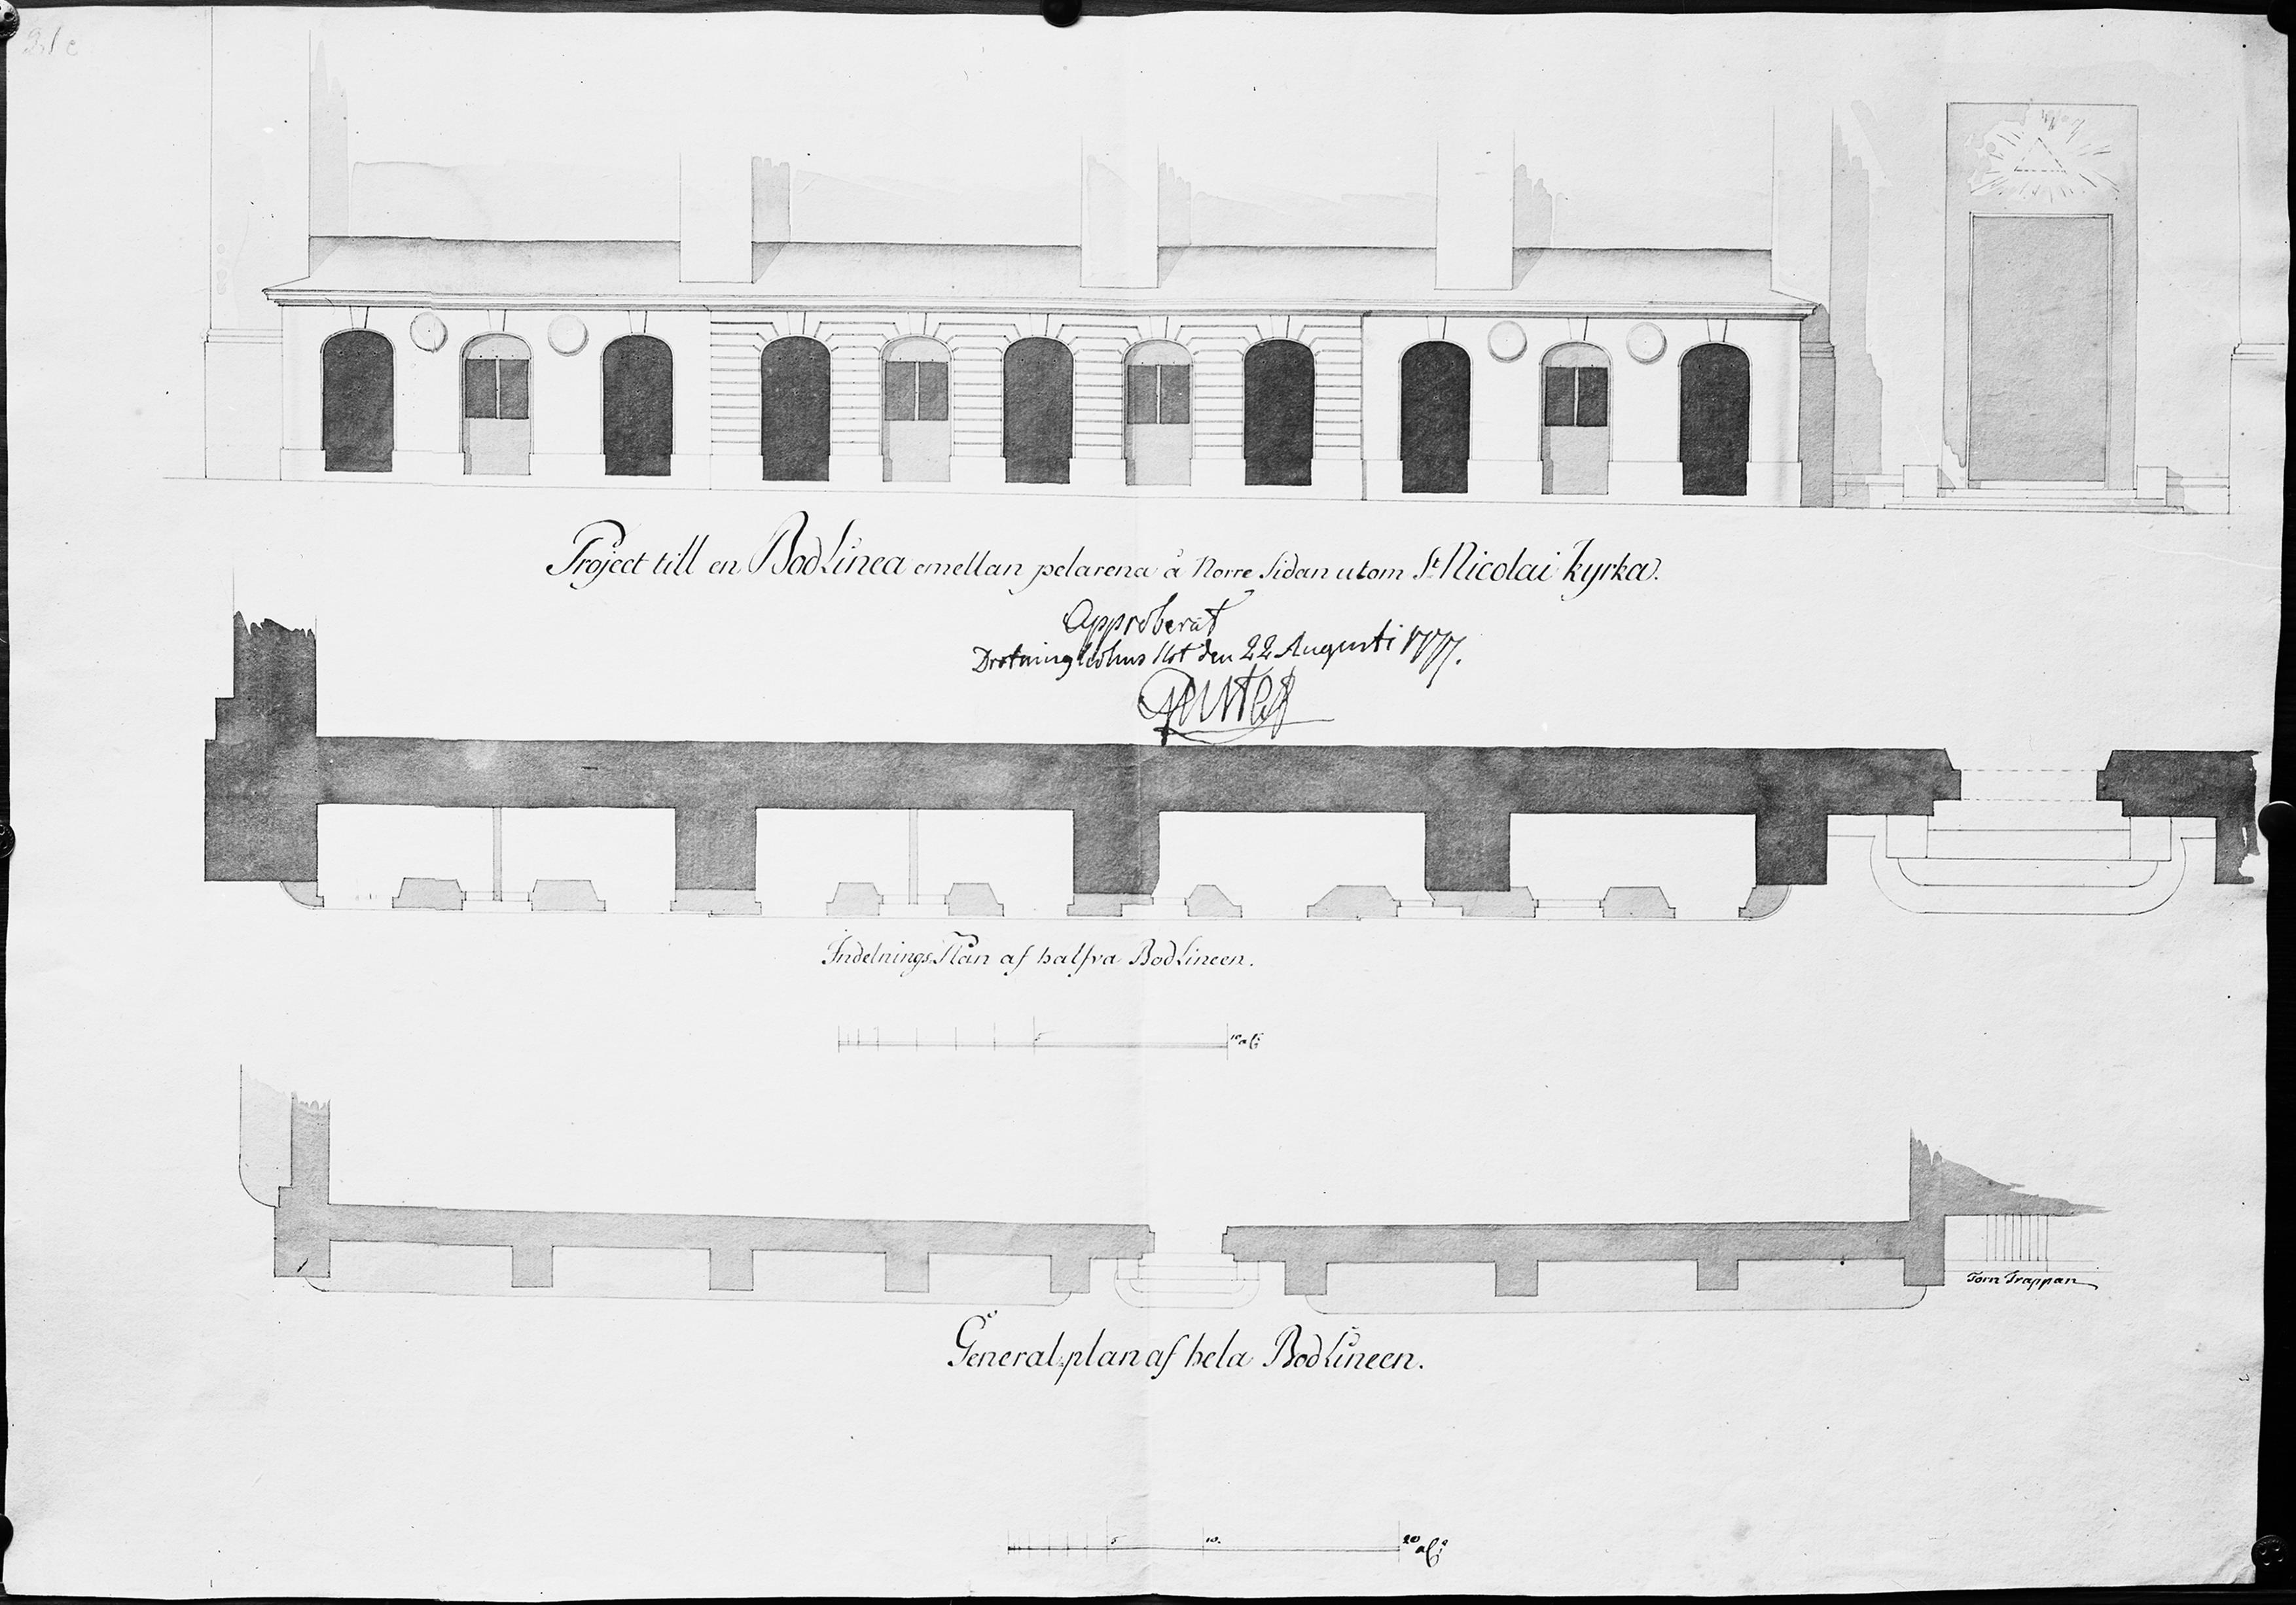 Project till en Bod Linea emellan pelarena å Norre Sidan utom St Nicolai Kyrka.
Approberat
Drotningholms Slot den 22 Augusti 1777.
Gustaf
Indelnings Plan af halfva Bod Lineen.
5 10 al:
Torn Trappan
General plan af hela Bod Lineen.
5 10. 20 al: